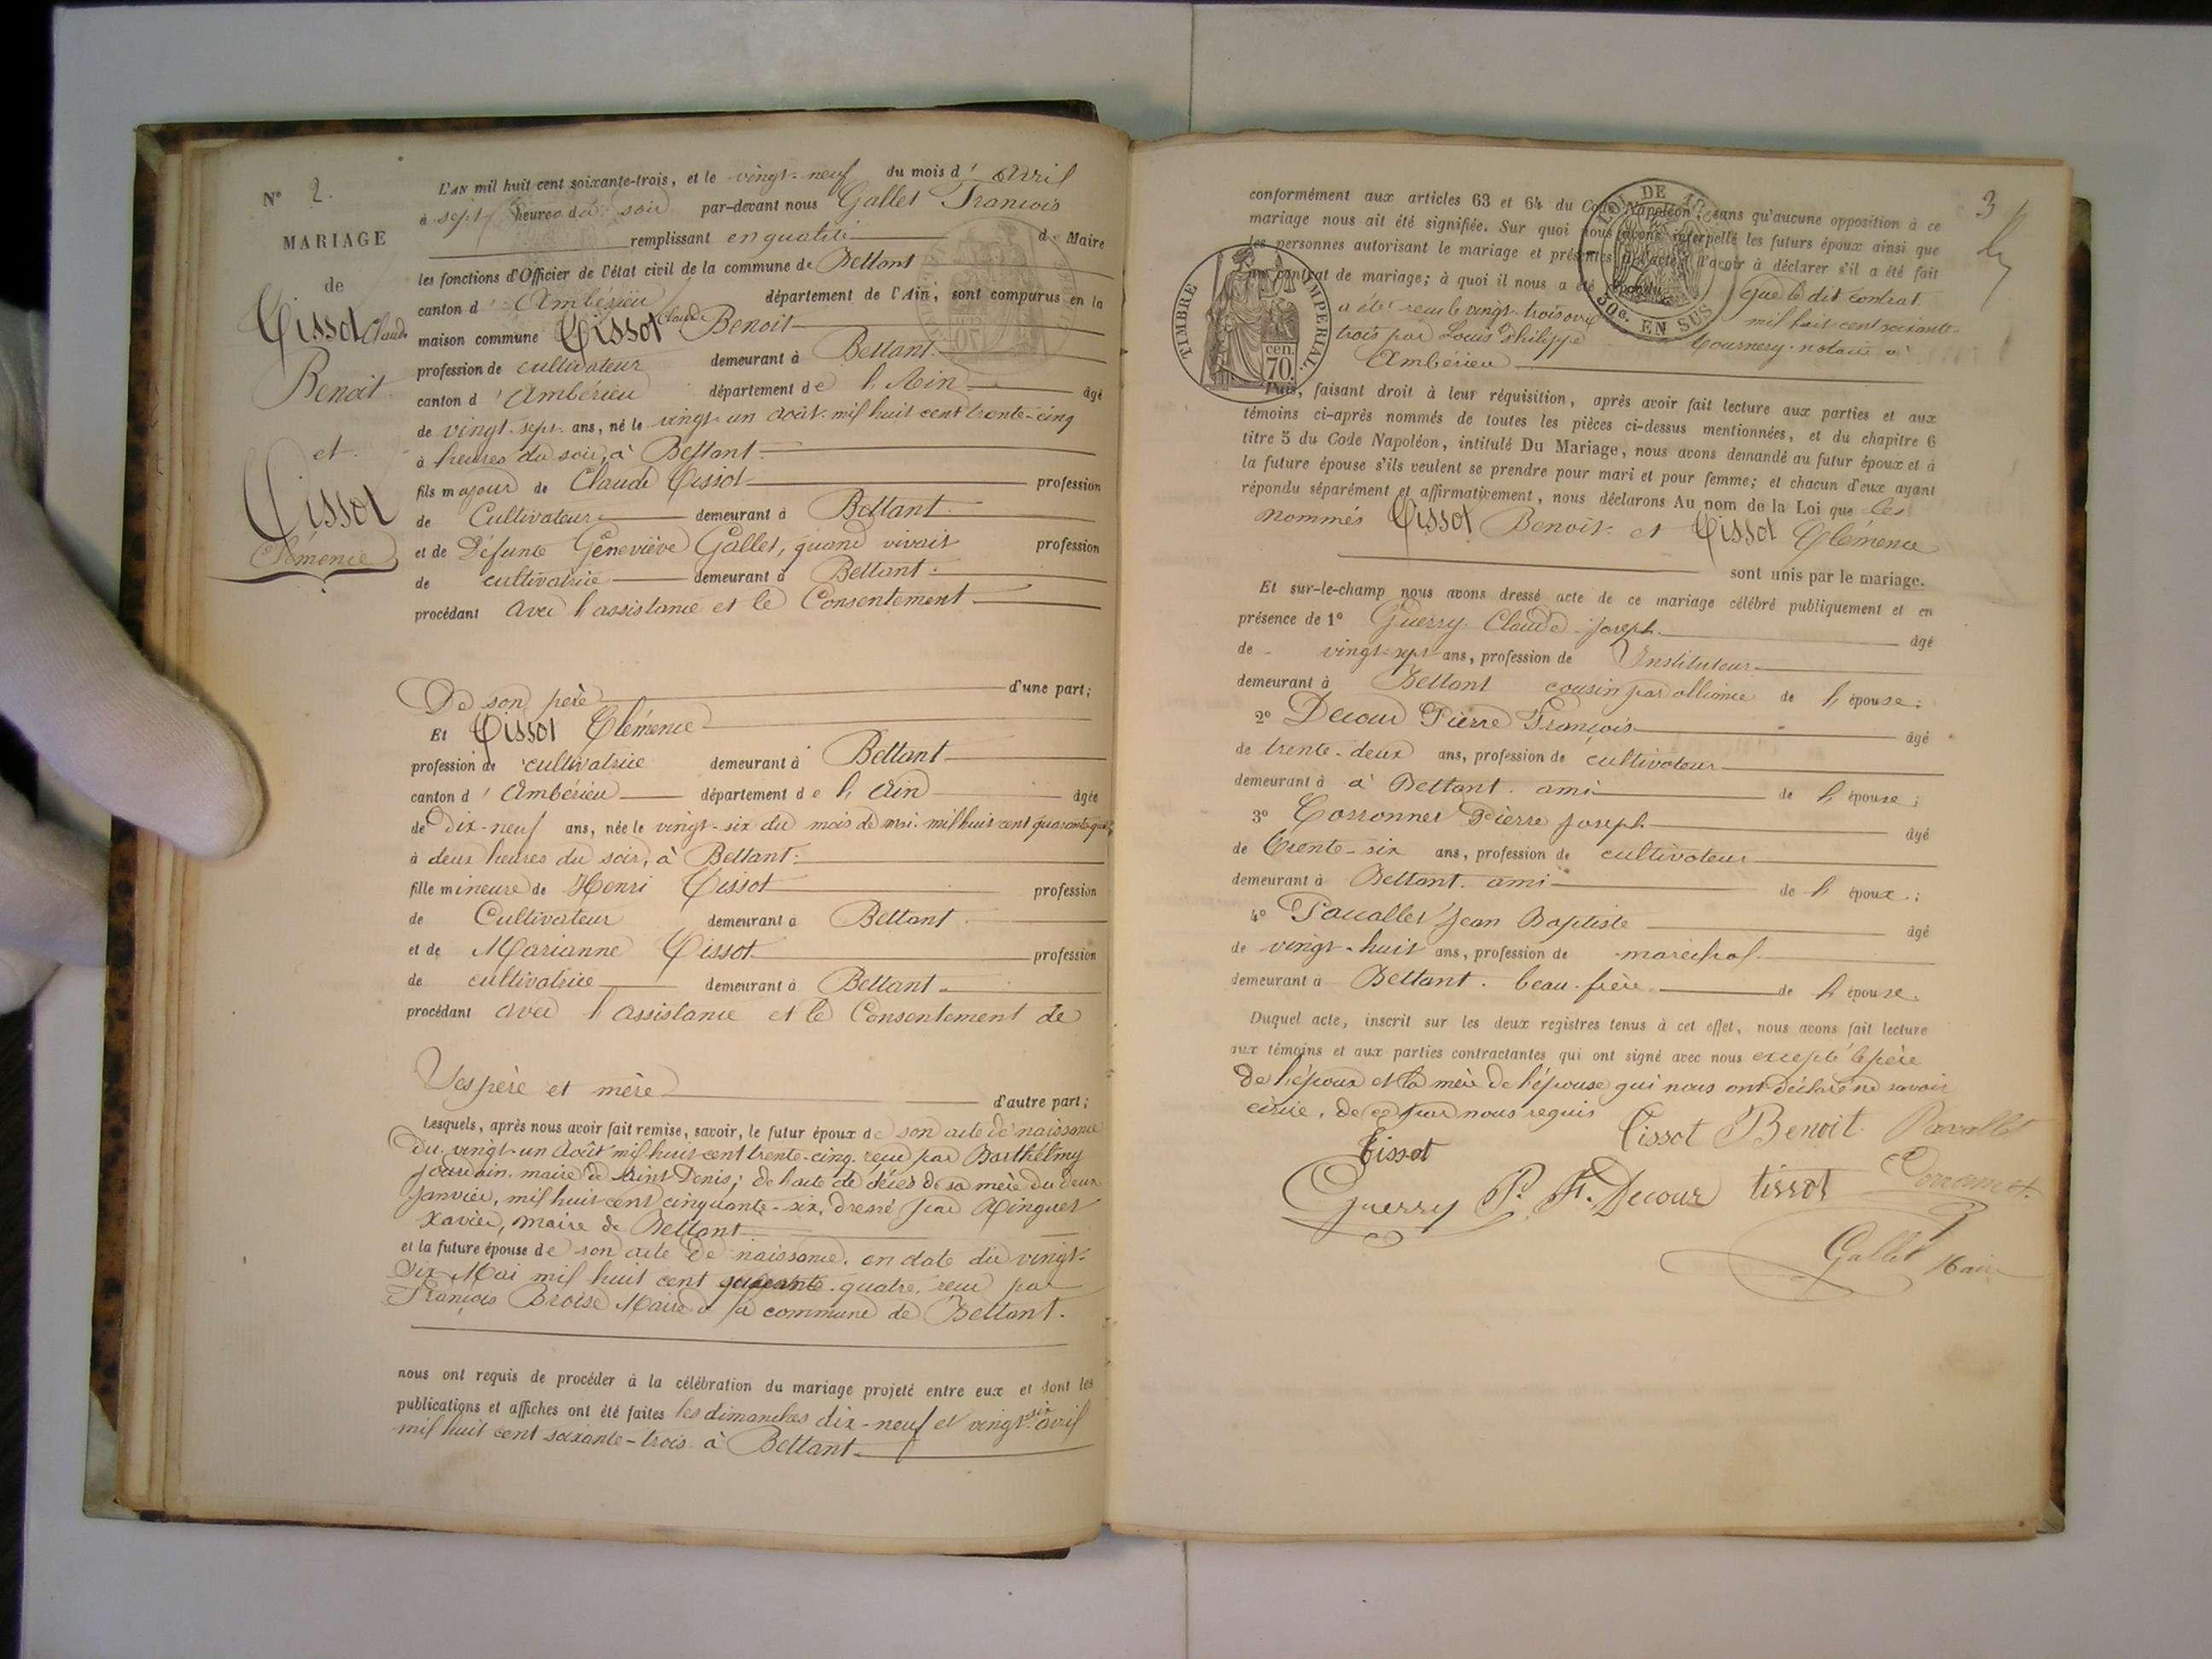 N° 2.
MARIAGE
de
Tissot Claude
Benoit
et
Tissot
Clémence
L'AN mil huit cent soixante-trois, et le vingt-neuf du mois d' Avril
à sept heures du soir par-devant nous Gallet François
remplissant en qualité de Maire
les fonctions d'Officier de l'état civil de la commune de Bettant
canton d' Ambérieu département de l'Ain, sont comparus en la
maison commune Tissot Claude Benoit
profession de cultivateur demeurant à Bettant
canton d' Ambérieu département de l'Ain âgé
de vingt-sept ans, né le vingt-un août mil huit cent trente-cinq
à heures du soir, à Bettant
fils majeur de Claude Tissot profession
de Cultivateur demeurant à Bettant
et de Défunte Geneviève Gallet, quand vivait profession
de cultivatrice demeurant à Bettant
procédant avec l'assistance et le Consentement
De son père d'une part;
Et Tissot Clémence
profession de cultivatrice demeurant à Bettant
canton d' Ambérieu département de l'Ain âgée
de Dix-neuf ans, née le vingt-six du mois de mai mil huit cent quarante quatre
à deux heures du soir, à Bettant
fille mineure de Henri Tissot profession
de Cultivateur demeurant à Bettant
et de Marianne Tissot profession
de cultivatrice demeurant à Bettant
procédant avec l'assistance et le Consentement de
Ses père et mère d'autre part;
Lesquels, après nous avoir fait remise, savoir, le futur époux de son acte de naissance
Du vingt-un Août mil huit cent trente-cinq reçu par Barthélmy
Jourdain maire de Saint Denis; de l'acte de décès de sa mère du deux
Janvier, mil huit cent cinquante-six, dressé par Ringuet
Xavier, maire de Bettant
et la future épouse de son acte de naissance en date du vingt-
six Mai mil huit cent quarante-quatre reçu par
François Broise Maire de la commune de Bettant.
nous ont requis de procéder à la célébration du mariage projeté entre eux et dont les
publications et affiches ont été faites les dimanches dix-neuf et vingt-six avril
mil huit cent soixante-trois à Bettant
3
TIMBRE IMPERIAL
cen.
70.
LOI DE
30c. EN SUS
conformément aux articles 63 et 64 du Code Napoléon, sans qu'aucune opposition à ce
mariage nous ait été signifiée. Sur quoi nous avons interpellé les futurs époux ainsi que
les personnes autorisant le mariage et présentes d'avoir à déclarer s'il a été fait
un contrat de mariage; à quoi il nous a été répondu que le dit contrat
a été reçu le vingt-trois avril mil huit cent soixante-
trois par Louis Philippe Tournery notaire à
Ambérieu
Puis, faisant droit à leur réquisition, après avoir fait lecture aux parties et aux
témoins ci-après nommés de toutes les pièces ci-dessus mentionnées, et du chapitre 6
titre 5 du Code Napoléon, intitulé Du Mariage, nous avons demandé au futur époux et à
la future épouse s'ils veulent se prendre pour mari et pour femme; et chacun d'eux ayant
répondu séparément et affirmativement, nous déclarons Au nom de la Loi que les
nommés Tissot Benoit et Tissot Clémence
sont unis par le mariage.
Et sur-le-champ nous avons dressé acte de ce mariage célébré publiquement et en
présence de 1° Guerry Claude Joseph âgé
de vingt-sept ans, profession de Instituteur
demeurant à Bettant cousin par alliance de l'épouse;
2° Decour Pierre François âgé
de trente-deux ans, profession de cultivateur
demeurant à à Bettant ami de l'épouse;
3° Corronnet Pierre Joseph âgé
de Trente-six ans, profession de cultivateur
demeurant à Bettant ami de l'époux;
4° Pavallet Jean Baptiste âgé
de vingt-huit ans, profession de maréchal
demeurant à Bettant. beau-frère de l'épouse.
Duquel acte, inscrit sur les deux registres tenus à cet effet, nous avons fait lecture
aux témoins et aux parties contractantes qui ont signé avec nous excepté le père
De l'époux et la mère de l'épouse qui nous ont déclaré ne savoir
écrire, de ce par nous requis
Tissot Tissot Benoit Pavallet
Guerry P. F. Decour tissot
Gallet Maire